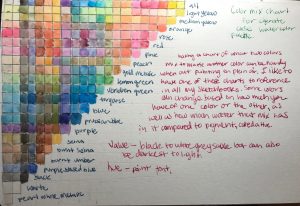 yellow
lightyellow
medium yellow
orange
rose
red
pink
peach
gold metallic
lemon green
viridian green
turquoise
blue
prussian blue
purple
sepia
burnt sienna
burnt umber
black
white
pearl white metallic
Color mix chart
for
watercolor
palette
Having a chart of what two colors
mix to make another color can be handy
when out painting en plein air. I like to
have one of these charts to reference
in all my sketchbooks. Some colors
also change based on how much you
have of one color or the other, as
well as how much water that mix has
in it compared to pigments,
Value - black to white greyscale but can also
be darkest to light.
hue - paint tint,